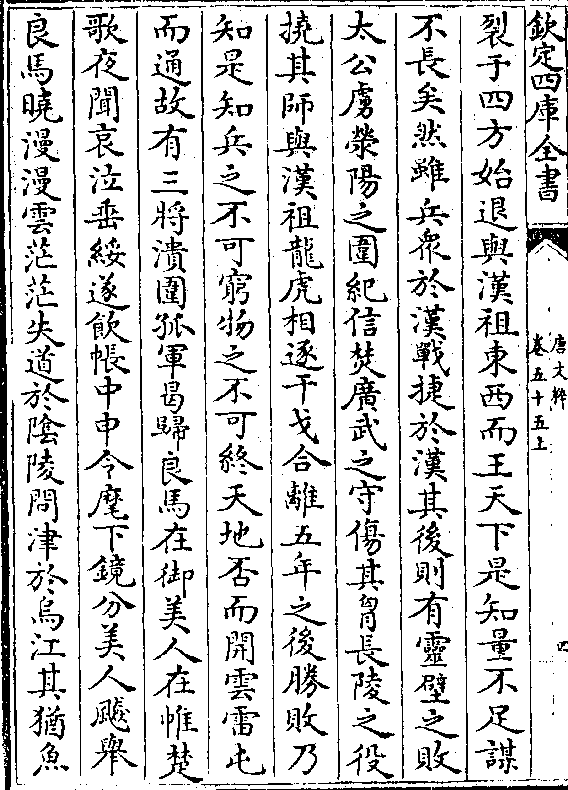 欽定四庫全書
唐文粹
卷五十五上
四
裂于四方始退與漢祖東西而王天下是知量不足謀
不長矣然雖兵衆於漢戰捷於漢其後則有靈壁之敗
太公虜滎陽之圍紀信焚廣武之守傷其胷長陵之役
撓其師與漢祖龍虎相逐干戈合離五年之後勝敗乃
知是知兵之不可窮物之不可終天地否而開雲雷屯
而通故有三將潰圍孤軍曷歸良馬在御美人在帷楚
歌夜聞哀泣垂綏遂飲帳中申令麾下鏡分美人飇舉
良馬曉漫漫雲茫茫失道於隂陵問津於烏江其猶魚